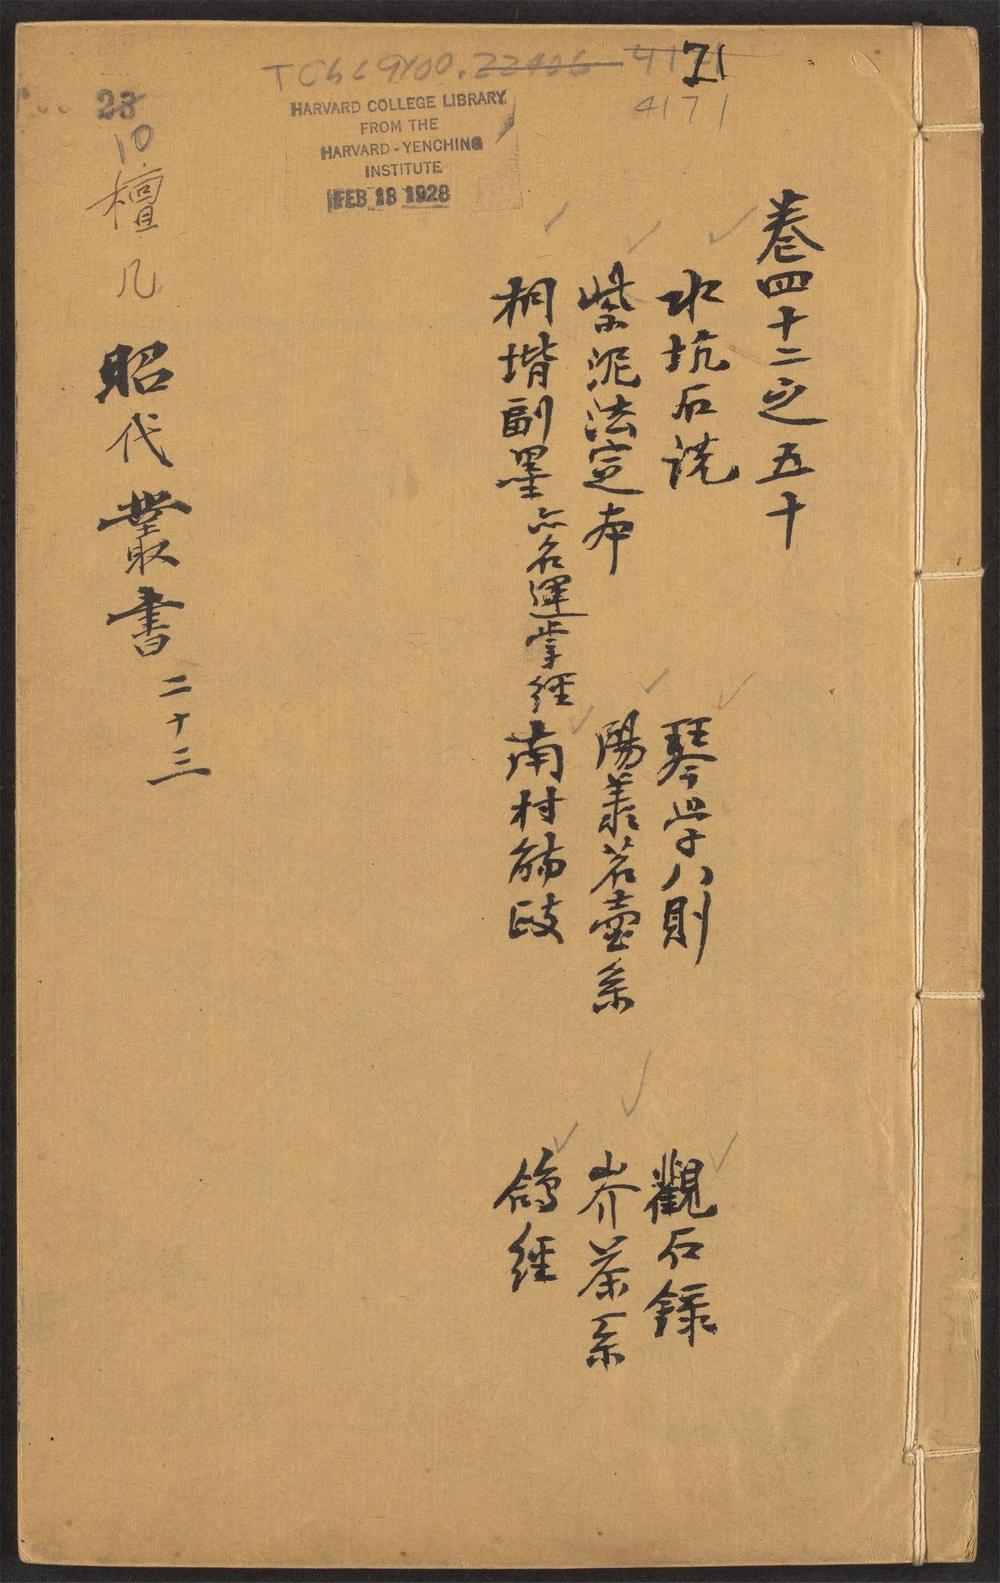 TChC 9100.22406 4171
71
4171
HARVARD COLLEGE LIBRARY
FROM THE
HARVARD-YENCHING
INSTITUTE
FEB 18 1928
卷四十二之五十
水坑石說 琴学八則 觀石錄
紫泥法定本 陽羨茗壺系 岕茶系
桐堦副墨亦名運掌經 南村觴政 鴿經
23
10
檀几
昭代叢書 二十三